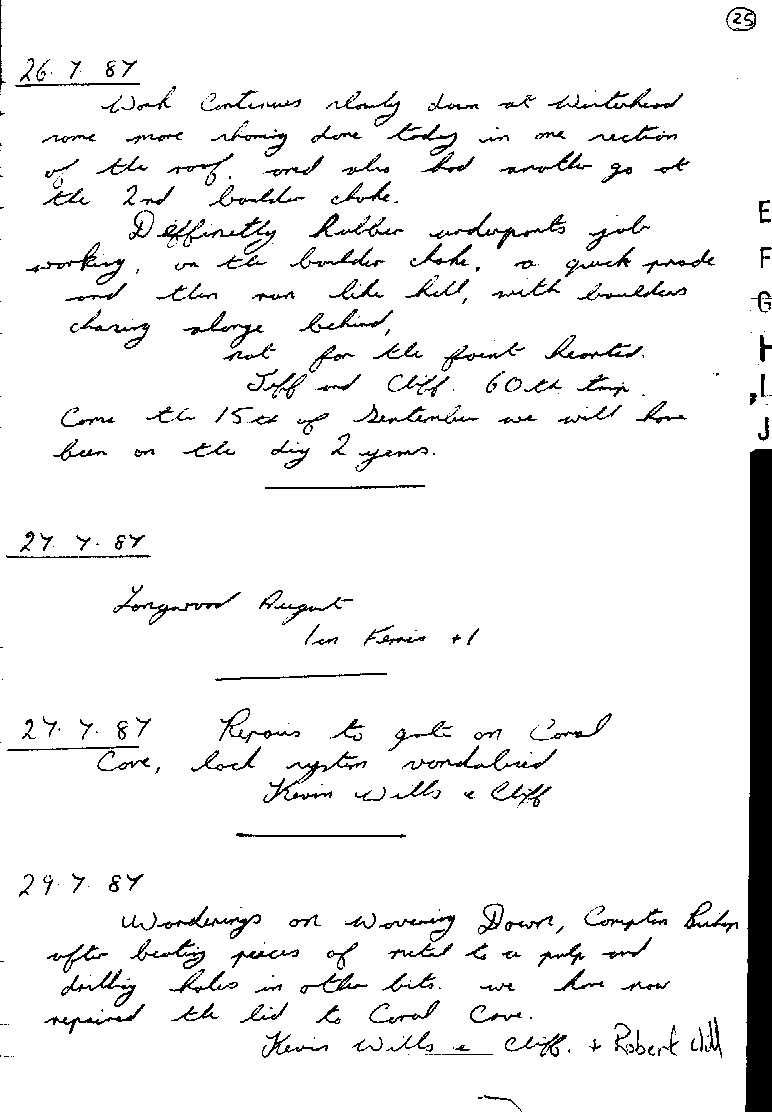 25
26. 7. 87
Work Continues slowly down at Winterhead
some more shoring done today in one section
of the roof. and also had another go at
the 2nd boulder choke.
Deffinetly Rubber underpants job
working, on the boulder choke, a quick prode
and then run like hell, with boulders
chasing alonge behind,
not for the faint hearted.
Jeff and Cliff. 60th trip.
Come the 15th of September we will have
been on the dig 2 years.
27. 7. 87
Longwood August
Ian +1
27. 7. 87 Repairs to gate on Coral
Cave, lock system vandalised
Kevin Wills & Cliff
29. 7. 87
Wanderings on Wavering Down, Compton Bishop
after beating pieces of metal to a pulp and
drilling holes in other bits. we have now
repaired the lid to Coral Cave.
Kevin Wills & Cliff. + Robert Will
E
F
G
H
I
J